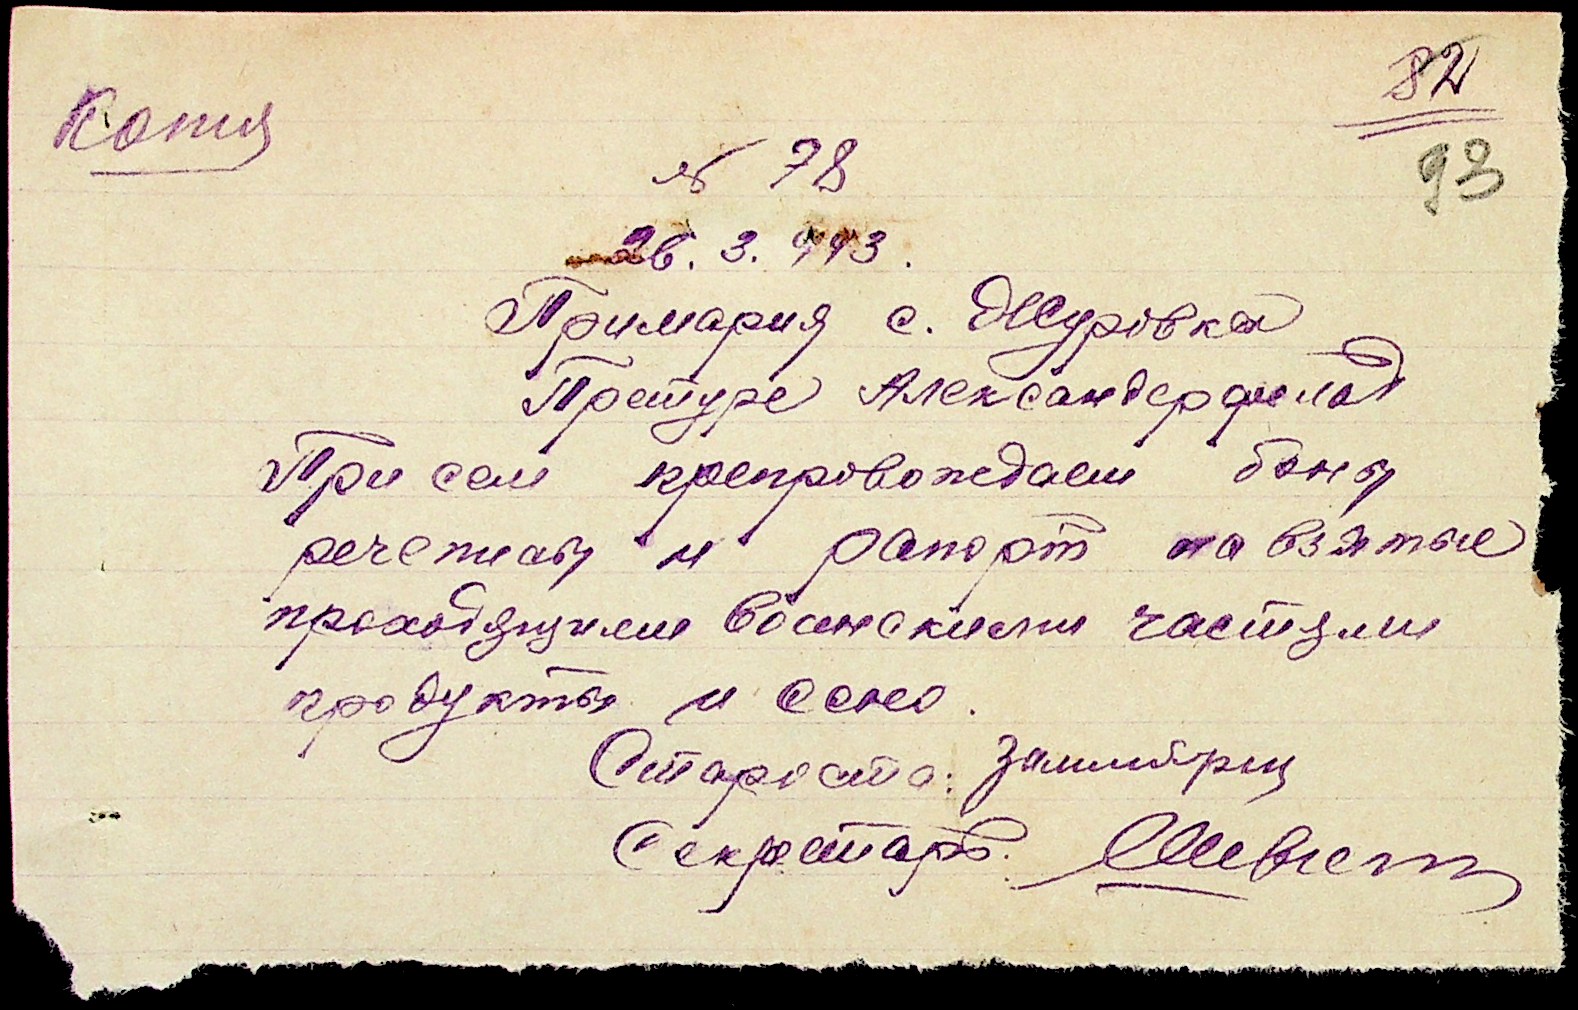 Копия
82
93
№ 78
26. 3. 943.
Примария с. Журовка
Претуре Александерфельд
При сем препровождаем боны
речепты и рапорт на взятые
проходящими воинскими частями
продукты и сено.
Староста:
Секретарь: